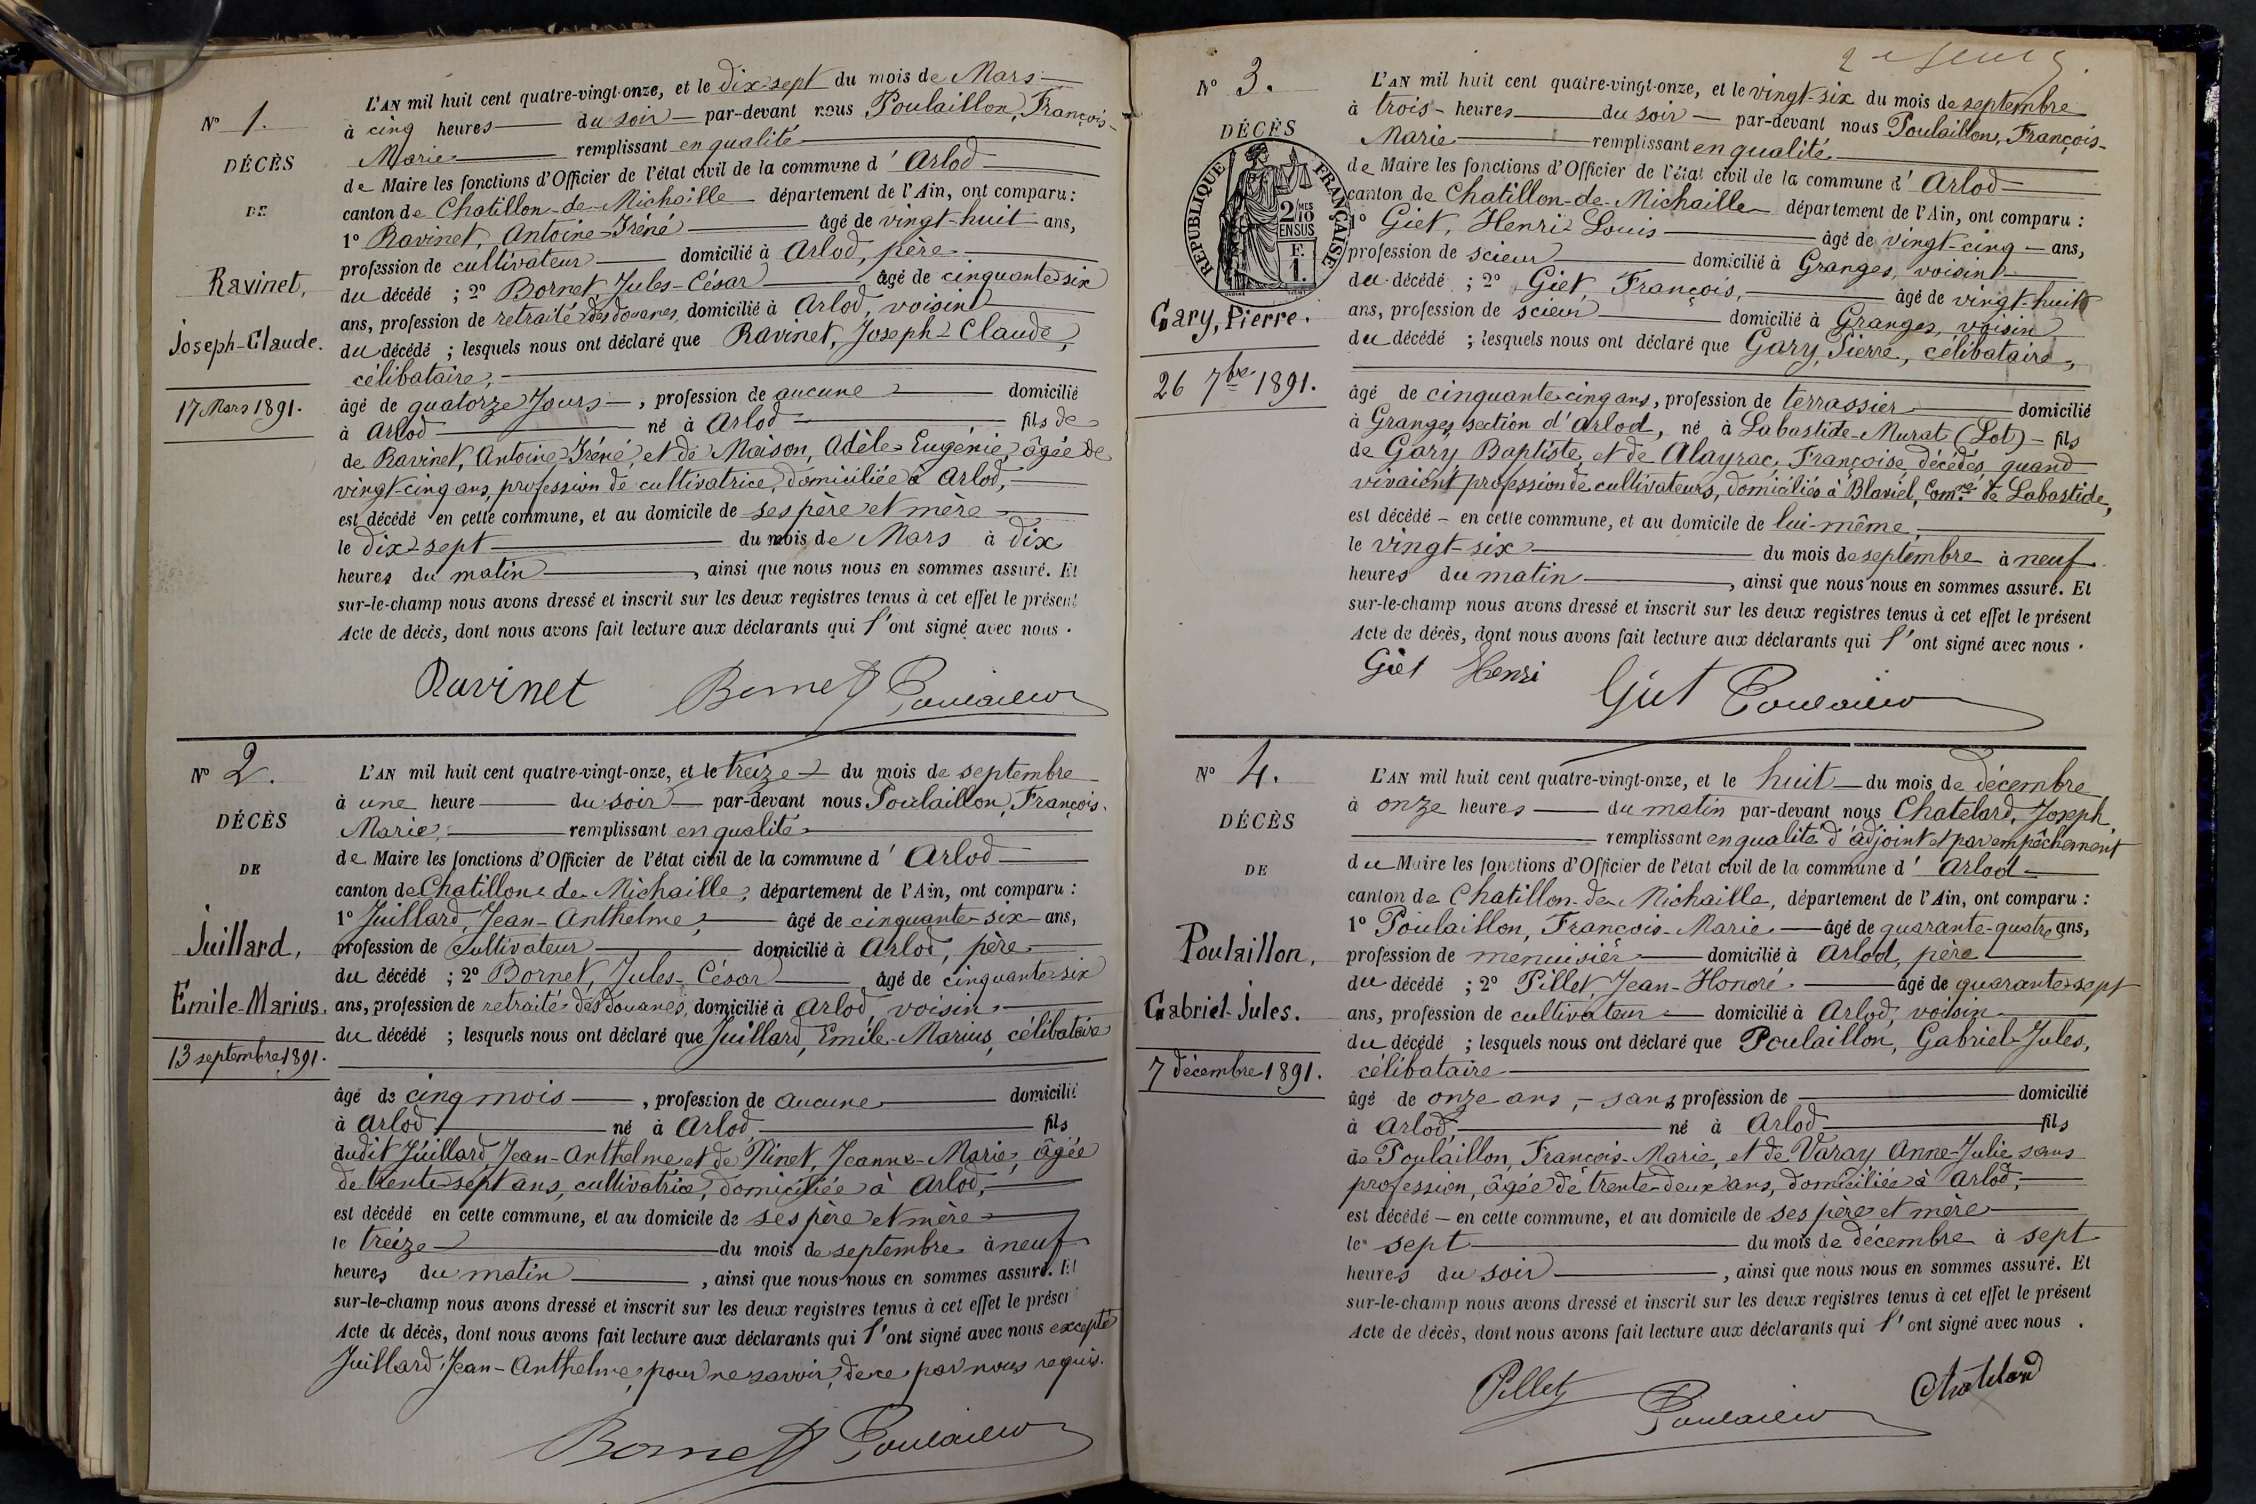 N° 1.
DÉCÈS
DE
Ravinet,
Joseph-Claude.
17 Mars 1891.
L'AN mil huit cent quatre-vingt-onze, et le dix-sept du mois de Mars
à cinq heures du soir par-devant nous Poulaillon, François-
Marie remplissant en qualité
de Maire les fonctions d'Officier de l'état civil de la commune d'Arlod
canton de Chatillon-de-Michaille département de l'Ain, ont comparu :
1° Ravinet, Antoine-Iréné âgé de vingt-huit ans,
profession de cultivateur domicilié à Arlod, père
du décédé ; 2° Bornet, Jules-César âgé de cinquante-six
ans, profession de retraité des douanes, domicilié à Arlod, voisin
du décédé ; lesquels nous ont déclaré que Ravinet, Joseph-Claude,
célibataire,
âgé de quatorze Jours, profession de aucune domicilié
à Arlod né à Arlod fils de
de Ravinet, Antoine-Iréné, et de Maison, Adèle-Eugénie, âgée de
vingt-cinq ans, profession de cultivatrice, domiciliée à Arlod,
est décédé en cette commune, et au domicile de ses père et mère
le dix-sept du mois de Mars à dix
heures du matin, ainsi que nous nous en sommes assuré. Et
sur-le-champ nous avons dressé et inscrit sur les deux registres tenus à cet effet le présent
Acte de décès, dont nous avons fait lecture aux déclarants qui l'ont signé avec nous.
Ravinet Bornet Poulaillon
N° 2.
DÉCÈS
DE
Juillard,
Émile-Marius.
13 septembre 1891.
L'AN mil huit cent quatre-vingt-onze, et le treize du mois de septembre
à une heure du soir par-devant nous Poulaillon, François-
Marie, remplissant en qualité
de Maire les fonctions d'Officier de l'état civil de la commune d'Arlod
canton de Chatillon-de-Michaille, département de l'Ain, ont comparu :
1° Juillard, Jean-Anthelme, âgé de cinquante-six ans,
profession de Cultivateur domicilié à Arlod, père
du décédé ; 2° Bornet, Jules-César âgé de cinquante-six
ans, profession de retraité des douanes, domicilié à Arlod, voisin
du décédé ; lesquels nous ont déclaré que Juillard, Emile-Marius, célibataire
âgé de cinq mois, profession de aucune domicilié
à Arlod né à Arlod, fils
dudit Juillard, Jean-Anthelme et de Ninet, Jeanne-Marie, âgée
de trente-sept ans, cultivatrice, domiciliée à Arlod,
est décédé en cette commune, et au domicile de ses père et mère
le treize du mois de septembre à neuf
heures du matin, ainsi que nous nous en sommes assuré. Et
sur-le-champ nous avons dressé et inscrit sur les deux registres tenus à cet effet le présen
Acte de décès, dont nous avons fait lecture aux déclarants qui l'ont signé avec nous excepté
Juillard, Jean-Anthelme, pour ne savoir, de ce par nous requis.
Bornet Poulaillon
N° 3.
DÉCÈS
RÉPUBLIQUE FRANÇAISE
2/10 MES
EN SUS
F. 1.
Gary, Pierre.
26 7bre 1891.
L'AN mil huit cent quatre-vingt-onze, et le vingt-six du mois de septembre
à trois heures du soir par-devant nous Poulaillon, François-
Marie remplissant en qualité
de Maire les fonctions d'Officier de l'état civil de la commune d'Arlod
canton de Chatillon-de-Michaille département de l'Ain, ont comparu :
1° Giet, Henri Louis âgé de vingt-cinq ans,
profession de scieur domicilié à Granges, voisin
du décédé ; 2° Giet, François, âgé de vingt-huit
ans, profession de scieur domicilié à Granges, voisin
du décédé ; lesquels nous ont déclaré que Gary, Pierre, célibataire,
âgé de cinquante-cinq ans, profession de terrassier domicilié
à Granges, section d'Arlod, né à Labastide-Murat (Lot) fils
de Gary Baptiste, et de Alayrac, Françoise, décédés, quand
vivaient profession de cultivateurs, domiciliés à Blaviel, Comne de Labastide,
est décédé en cette commune, et au domicile de lui-même,
le vingt-six du mois de septembre à neuf
heures du matin, ainsi que nous nous en sommes assuré. Et
sur-le-champ nous avons dressé et inscrit sur les deux registres tenus à cet effet le présent
Acte de décès, dont nous avons fait lecture aux déclarants qui l'ont signé avec nous.
Giet Henri Giet Poulaillon
N° 4.
DÉCÈS
DE
Poulaillon,
Gabriel-Jules.
7 décembre 1891.
L'AN mil huit cent quatre-vingt-onze, et le huit du mois de décembre
à onze heures du matin par-devant nous Chatelard, Joseph
remplissant en qualité d'adjoint et par empêchement
du Maire les fonctions d'Officier de l'état civil de la commune d'Arlod
canton de Chatillon-de-Michaille, département de l'Ain, ont comparu :
1° Poulaillon, François-Marie âgé de quarante-quatre ans,
profession de menuisier domicilié à Arlod, père
du décédé ; 2° Pillet, Jean-Honoré âgé de quarante-sept
ans, profession de cultivateur domicilié à Arlod, voisin
du décédé ; lesquels nous ont déclaré que Poulaillon, Gabriel-Jules,
célibataire
âgé de onze ans, sans profession de domicilié
à Arlod, né à Arlod fils
de Poulaillon, François-Marie, et de Varay Anne-Julie sans
profession, âgée de trente-deux ans, domiciliée à Arlod,
est décédé en cette commune, et au domicile de ses père et mère
le sept du mois de décembre à sept
heures du soir, ainsi que nous nous en sommes assuré. Et
sur-le-champ nous avons dressé et inscrit sur les deux registres tenus à cet effet le présent
Acte de décès, dont nous avons fait lecture aux déclarants qui l'ont signé avec nous.
Pillet Poulaillon Chatelard